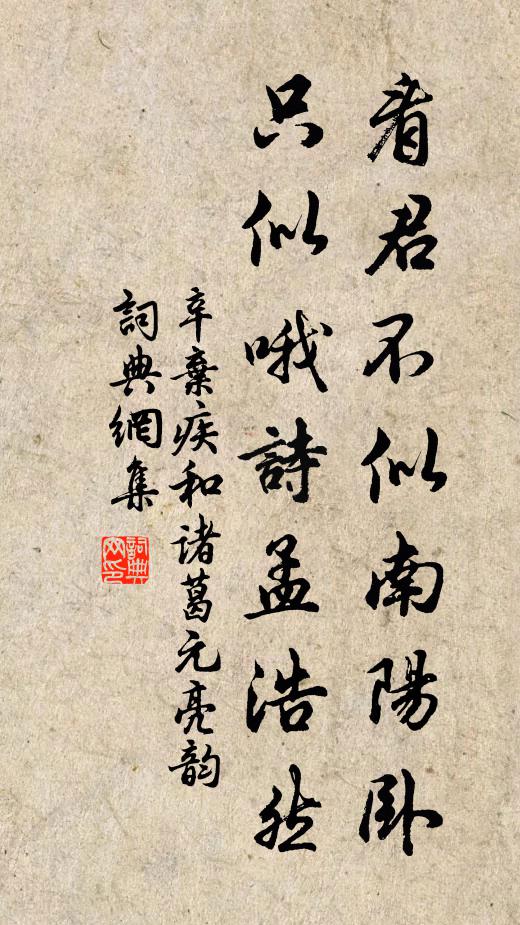 看君不似南陽臥
只似哦詩孟浩然
辛棄疾和诸葛元亮韵
詞典網集
詞典网印